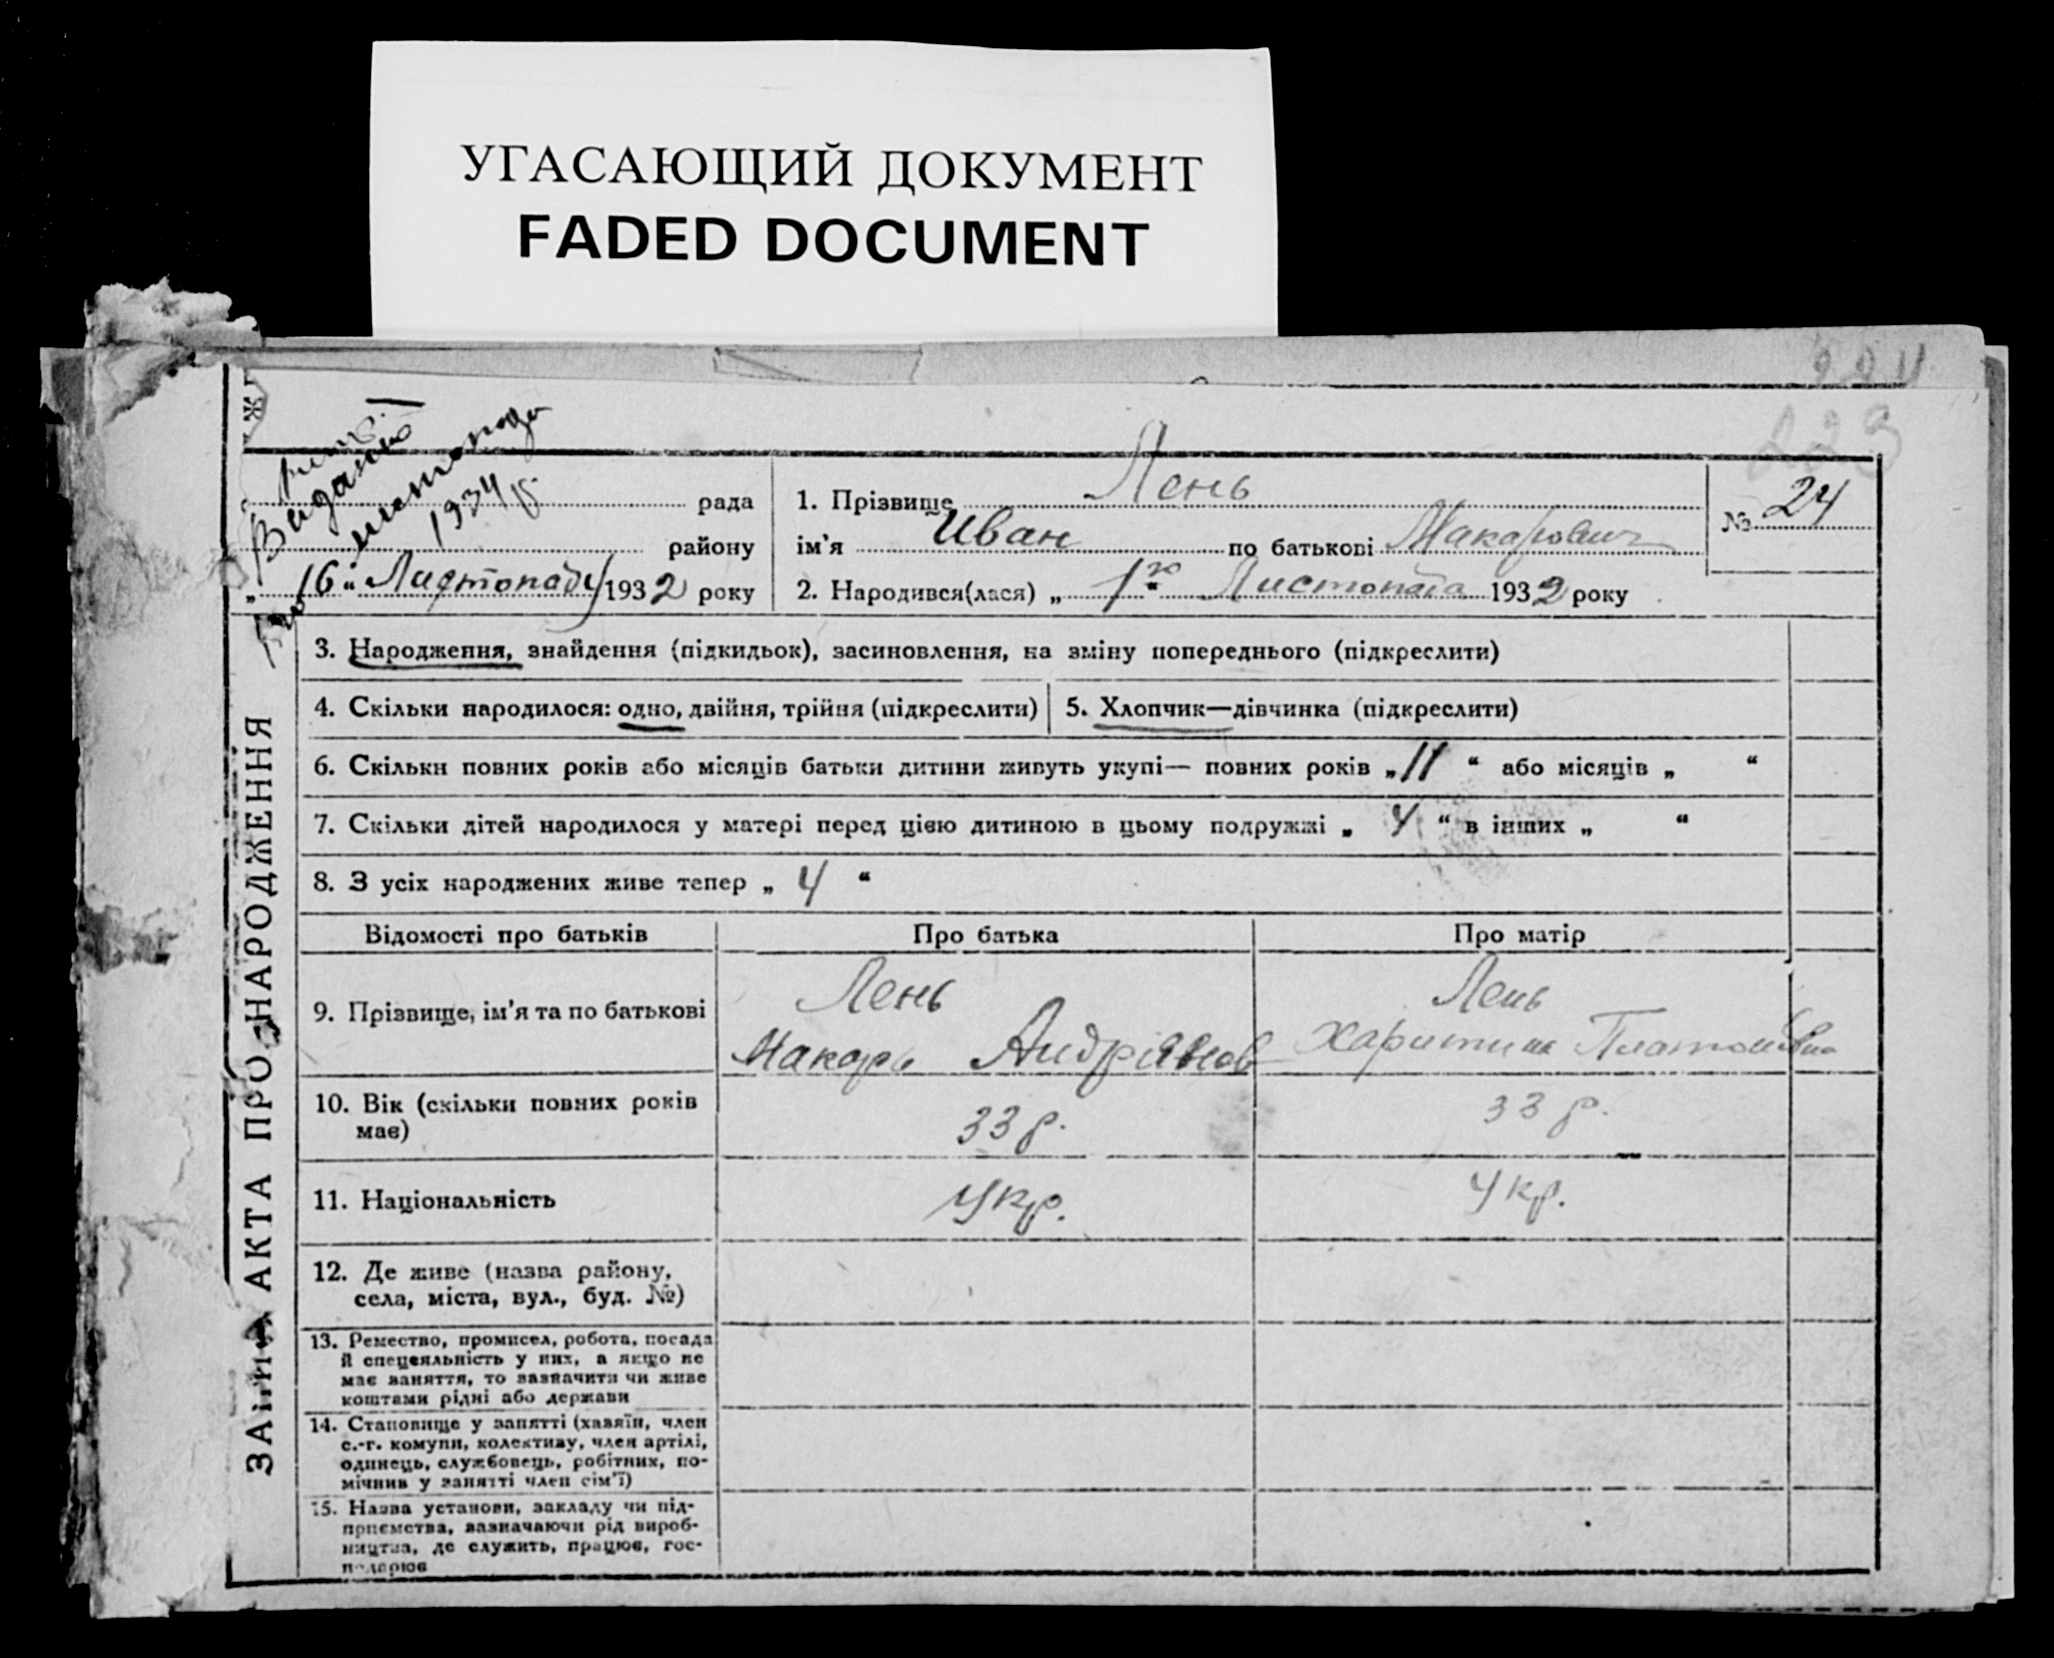 УГАСАЮЩИЙ ДОКУМЕНТ
FADED DOCUMENT
224
223
Видано
листопада
1934 р.
рада
району
„16“ Листопаду 1932 року
1. Прізвище Лень
ім'я Иван по батькові Макарович
2. Народився(лася) „1го“ Листопада 1932 року
№ 24
ЗАПИС АКТА ПРО НАРОДЖЕННЯ
3. Народження, знайдення (підкидьок), засиновлення, на зміну попереднього (підкреслити)
4. Скільки народилося: одно, двійня, трійня (підкреслити)
5. Хлопчик—дівчинка (підкреслити)
6. Скільки повних років або місяців батьки дитини живуть укупі— повних років „11“ або місяців „ “
7. Скільки дітей народилося у матері перед цією дитиною в цьому подружжі „4“ в інших „ “
8. З усіх народжених живе тепер „4“
Відомості про батьків Про батька Про матір
9. Прізвище, ім'я та по батькові
Лень
Макарь Андріянов
Лень
Харитина Платоновна
10. Вік (скільки повних років
має)
33 р. 33 р.
11. Національність Укр. Укр.
12. Де живе (назва району,
села, міста, вул., буд. №)
13. Ремество, промисел, робота, посада
й спеціяльність у них, а якщо не
має заняття, то зазначити чи живе
коштами рідні або держави
14. Становище у занятті (хазяїн, член
с.-г. комуни, колективу, член артілі,
одинець, службовець, робітник, по-
мічник у занятті член сім'ї)
15. Назва установи, закладу чи під-
приємства, зазначаючи рід вироб-
ництва, де служить, працює, гос-
подарює